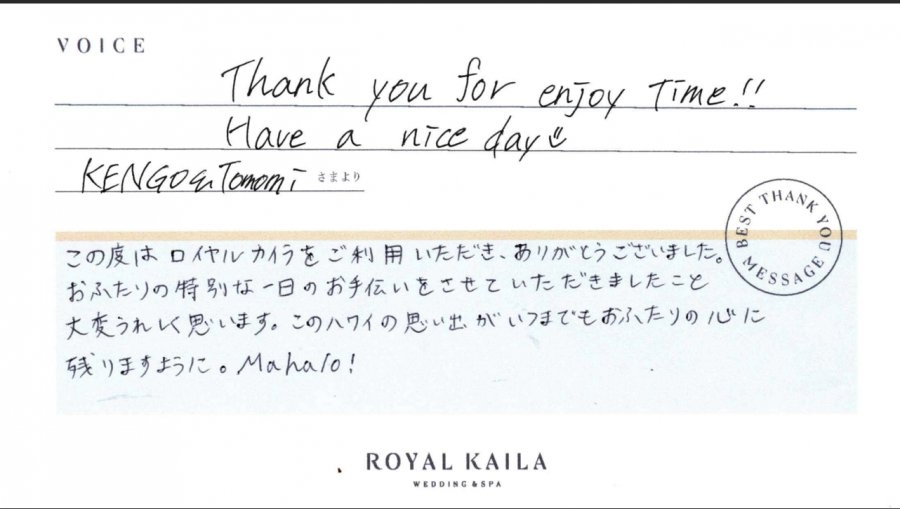 VOICE
Thank you for enjoy Time!!
Have a nice day
KENGO & Tomomi さまより
BEST THANK YOU MESSAGE
この度はロイヤルカイラをご利用いただき、ありがとうございました。
おふたりの特別な一日のお手伝いをさせていただきましたこと
大変うれしく思います。このハワイの思い出がいつまでもおふたりの心に
残りますように。Mahalo!
ROYAL KAILA
WEDDING & SPA